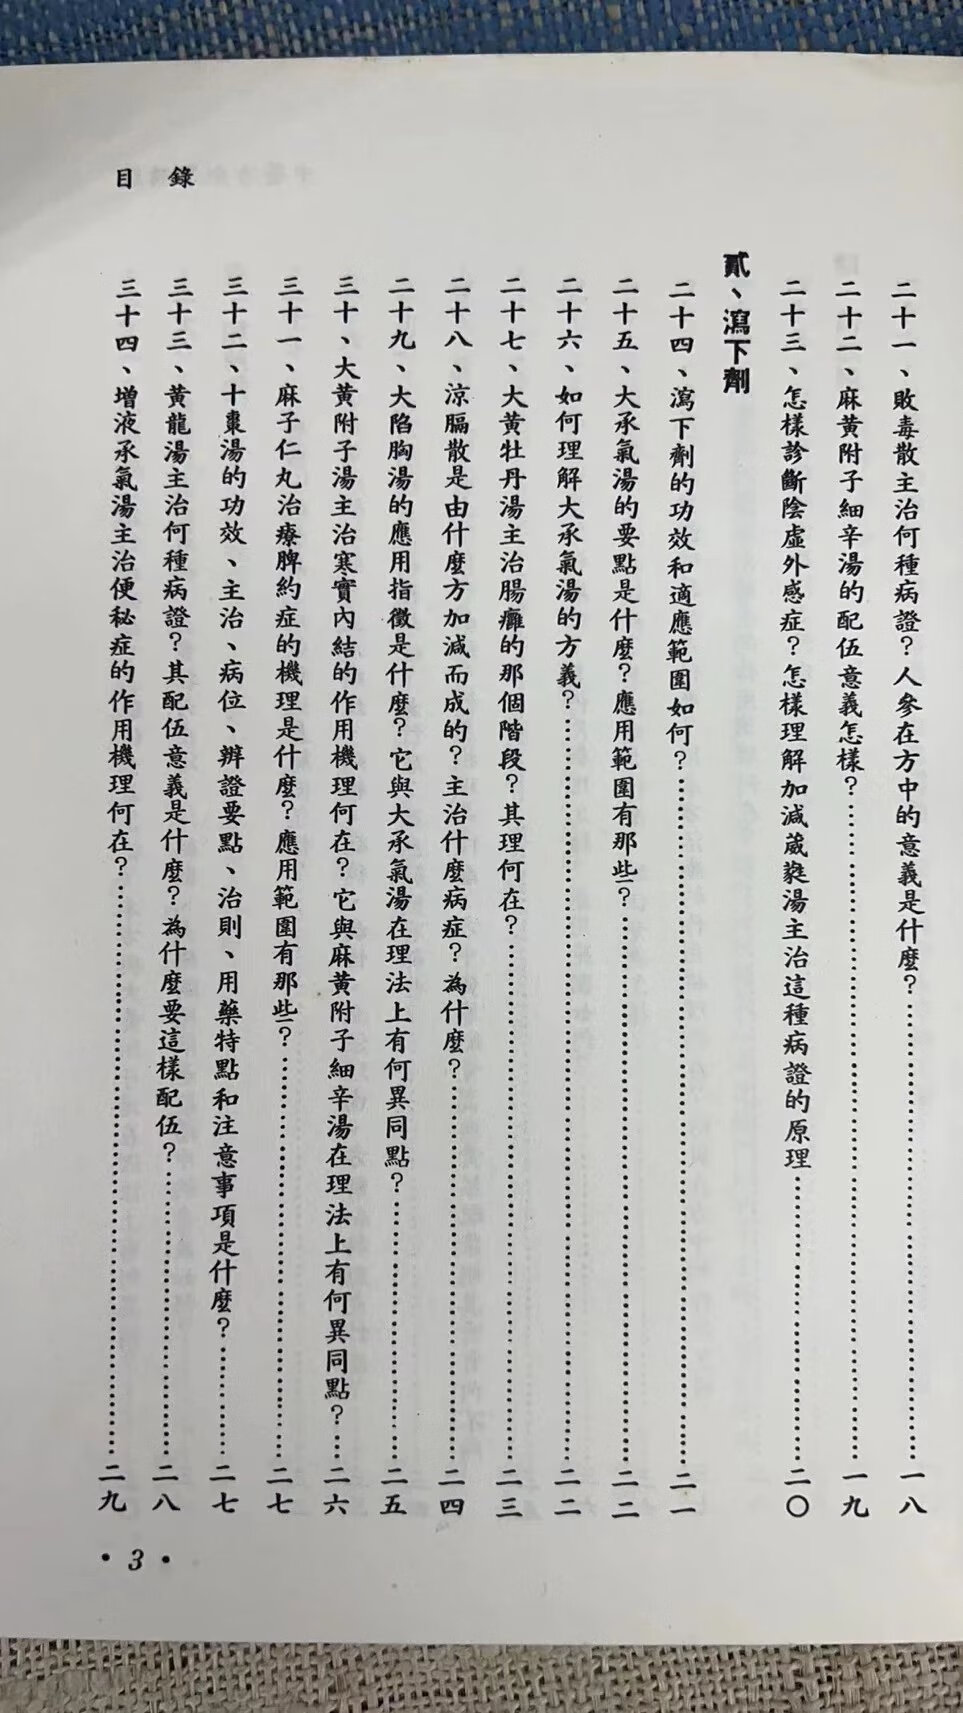 目錄
二十一、敗毒散主治何種病證？人參在方中的意義是什麼？……一八
二十二、麻黃附子細辛湯的配伍意義怎樣？……一九
二十三、怎樣診斷陰虛外感症？怎樣理解加減葳蕤湯主治這種病證的原理……二〇
貳、瀉下劑
二十四、瀉下劑的功效和適應範圍如何？……二一
二十五、大承氣湯的要點是什麼？應用範圍有那些？……二二
二十六、如何理解大承氣湯的方義？……二二
二十七、大黃牡丹湯主治腸癰的那個階段？其理何在？……二三
二十八、涼膈散是由什麼方加減而成的？主治什麼病症？為什麼？……二四
二十九、大陷胸湯的應用指徵是什麼？它與大承氣湯在理法上有何異同點？……二五
三十、大黃附子湯主治寒實內結的作用機理何在？它與麻黃附子細辛湯在理法上有何異同點？……二六
三十一、麻子仁丸治療脾約症的機理是什麼？應用範圍有那些？……二七
三十二、十棗湯的功效、主治、病位、辨證要點、治則、用藥特點和注意事項是什麼？……二七
三十三、黃龍湯主治何種病證？其配伍意義是什麼？為什麼要這樣配伍？……二八
三十四、增液承氣湯主治便秘症的作用機理何在？……二九
• 3 •